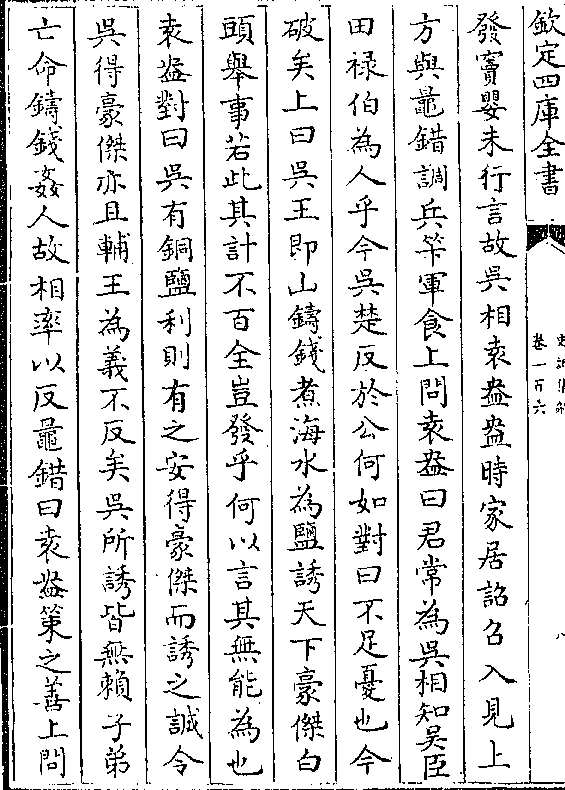 欽定四庫全書
卷一百六
發竇嬰未行言故吳相袁盎盎時家居詔召入見上
方與鼂錯調兵笇軍食上問袁盎曰君常為吳相知吳臣
田祿伯為人乎今吳楚反於公何如對曰不足憂也今
破矣上曰吳王即山鑄錢煮海水為鹽誘天下豪傑白
頭舉事若此其計不百全豈發乎何以言其無能為也
袁盎對曰吳有銅鹽利則有之安得豪傑而誘之誠令
吳得豪傑亦且輔王為義不反矣吳所誘皆無賴子弟
亡命鑄錢姦人故相率以反鼂錯曰袁盎策之善上問